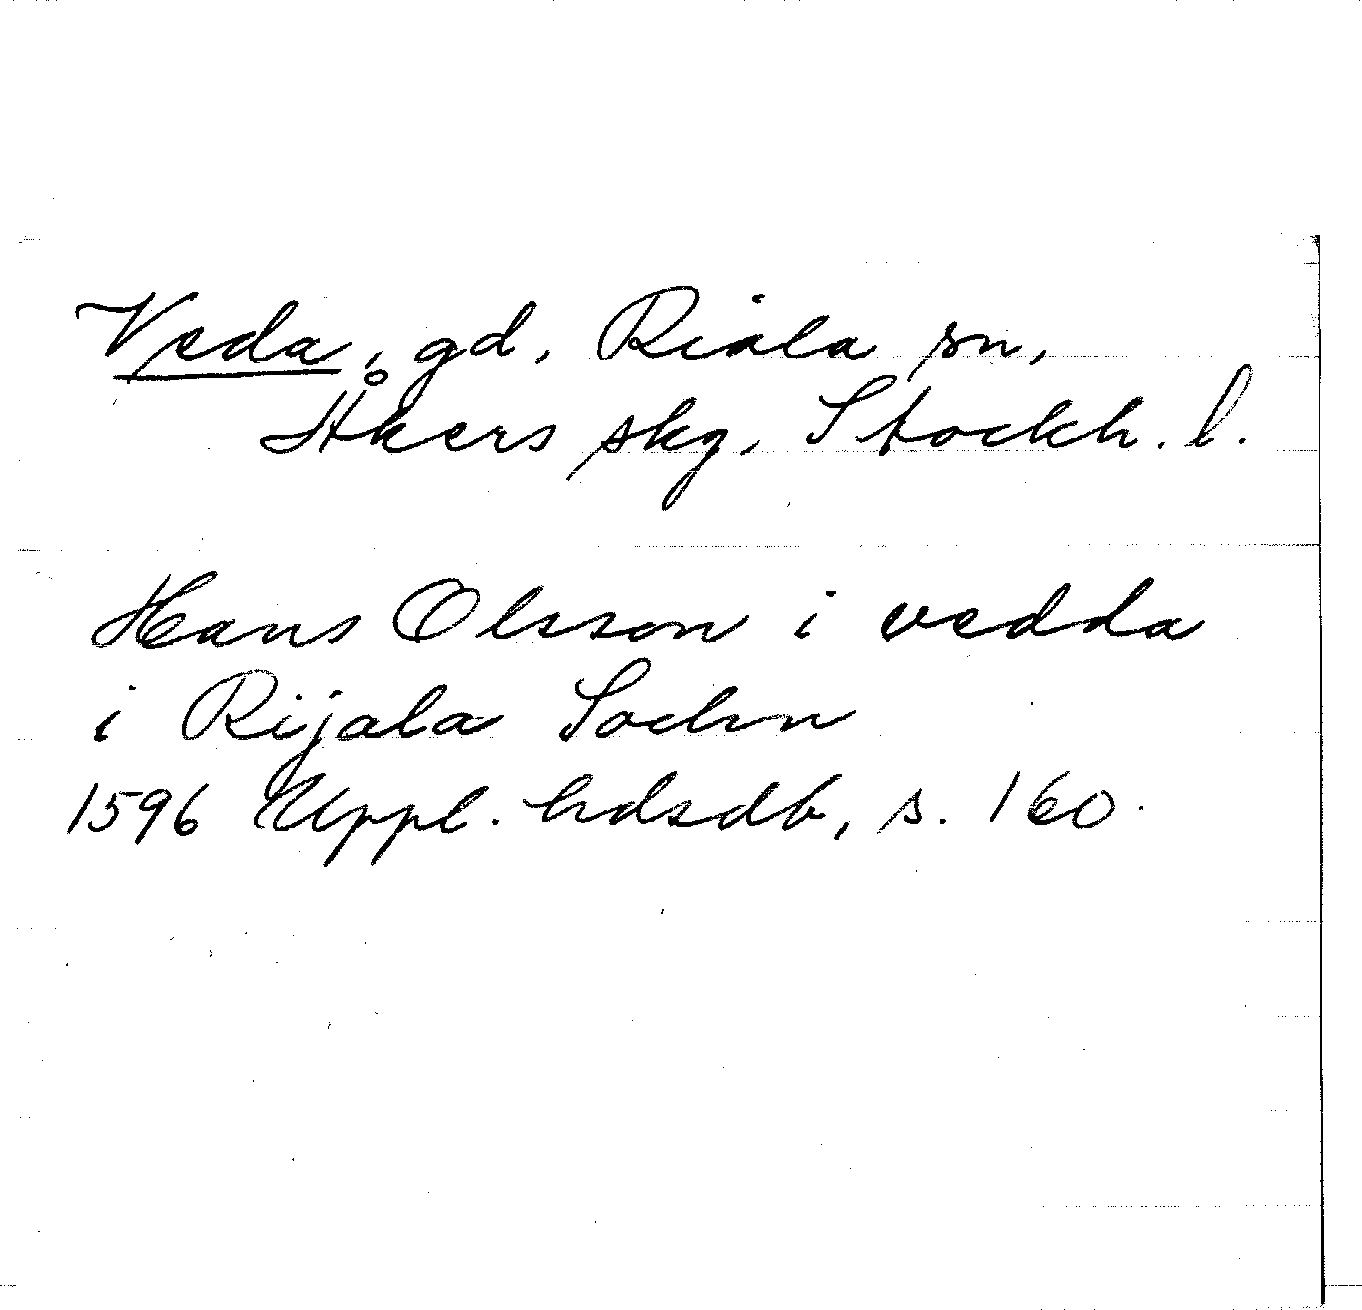 Veda, gd, Riala sn,
Åkers skg, Stockh. l.
Hans Olsson i vedda
i Rijala Sochn
1596 Uppl. hdsdb, s. 160.